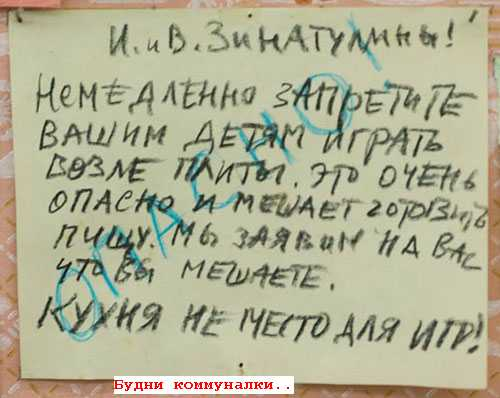 И. и В. Зинатулины!
Немедленно запретите
вашим детям играть
возле плиты. Это очень
опасно и мешает готовить
пищу. Мы заявим на вас
что вы мешаете.
Кухня не место для игр!
ОПАСНО!
Будни коммуналки..